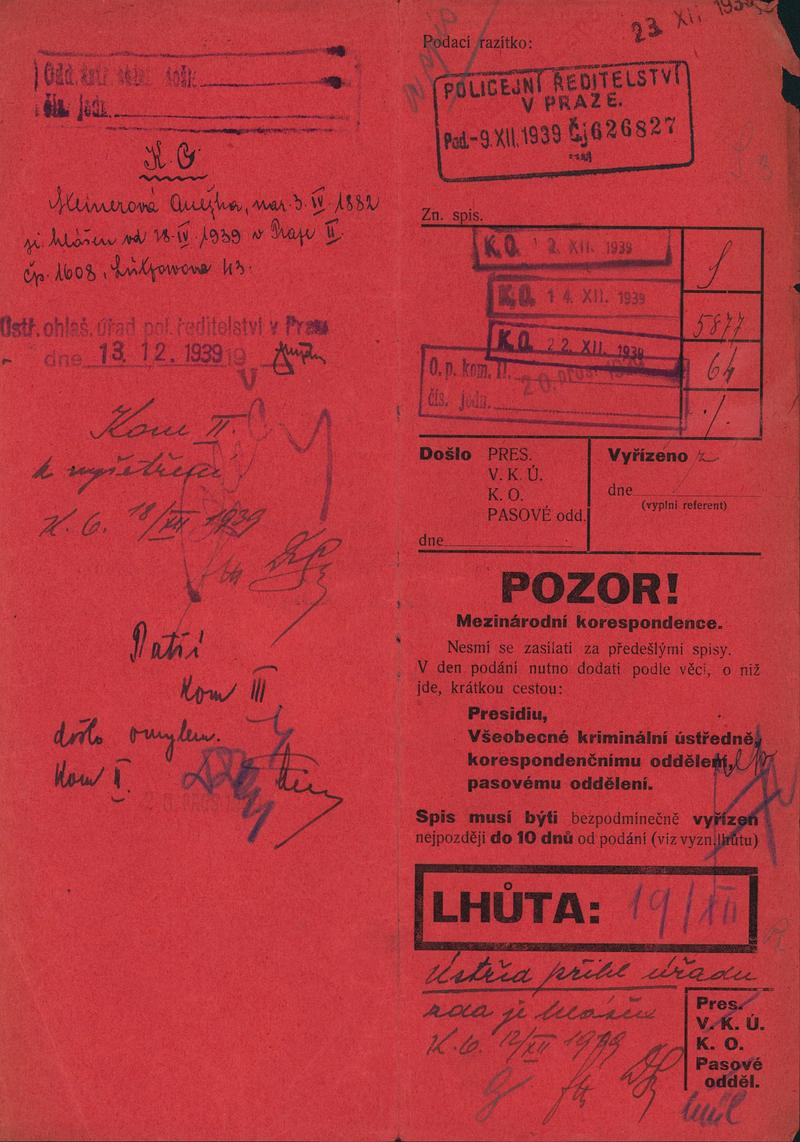 Odd.
čís. jedn.
K. O.
Anežka, nar. 3. IV. 1882
hlášen od 28. IV. 1939 v Praze II.
čp. 1608, Lützowova 43.
Ústř. ohlaš. úřad pol. ředitelství v Praze
dne 13. 12. 1939
Kom II.
k vyšetření
K. O. 18/XII 1939
Patří
Kom III
došlo omylem.
Kom II.
23 XII 1939
Podací razítko:
POLICEJNÍ ŘEDITELSTVÍ
V PRAZE.
Pod. -9. XII. 1939 Čj 626827
Zn. spis.
K. O. 12. XII. 1939
K. O. 14. XII. 1939
K. O. 22. XII. 1939
O. p. kom. II.
20. pros. 1939
čís. jedn.
5877
64
Došlo PRES.
V. K. Ú.
K. O.
PASOVÉ odd.
dne
Vyřízeno
dne
(vyplní referent)
POZOR!
Mezinárodní korespondence.
Nesmí se zasílati za předešlými spisy.
V den podání nutno dodati podle věci, o niž
jde, krátkou cestou:
Presidiu,
Všeobecné kriminální ústředně,
korespondenčnímu oddělení,
pasovému oddělení.
Spis musí býti bezpodmínečně vyřízen
nejpozději do 10 dnů od podání (viz vyzn. lhůtu)
LHŮTA: 19/XII
Ústřed přihl úřadu
zda je hlášen
K. O. 12/XII 1939
Pres.
V. K. Ú.
K. O.
Pasové
odděl.